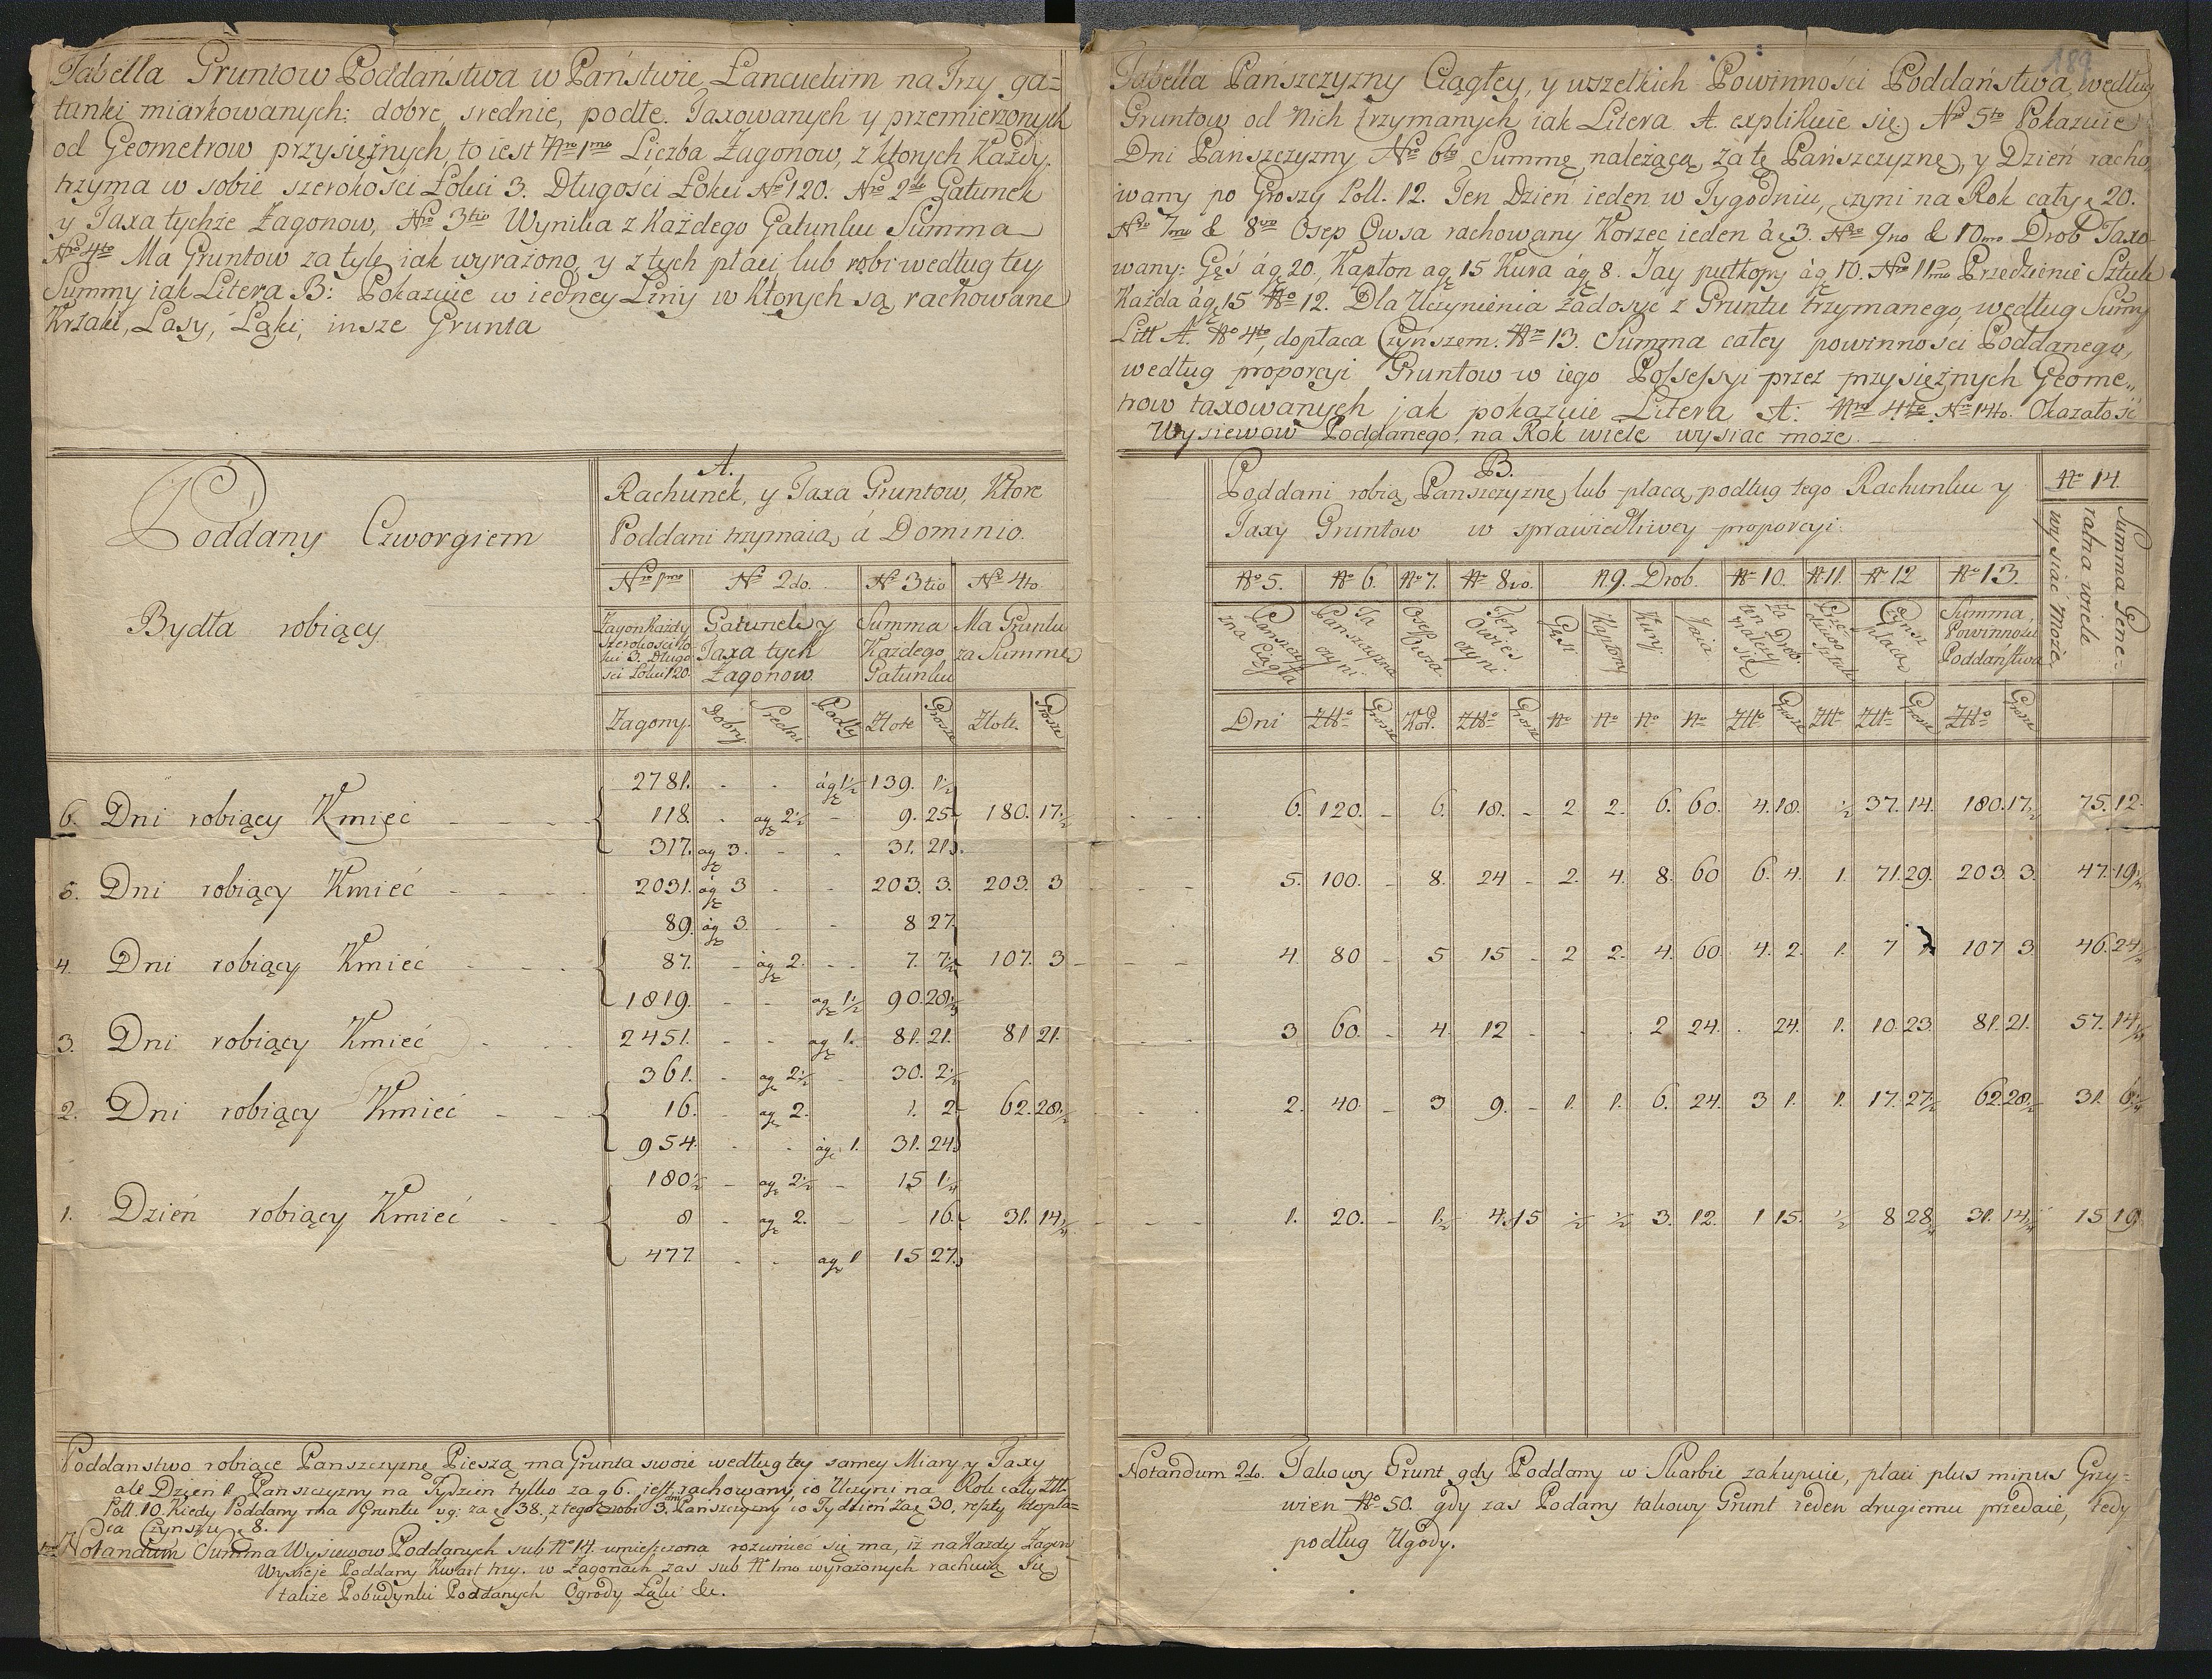 Tabella Gruntow Poddaństwa w Państwie Lancuckim na Trzy ga=
tunki miarkowanych: dobre, srednie, podłe. Taxowanych y przemierzonych
od Geometrow przysięźnych, to iest Nro 1mo Liczba Zagonow, z ktorych Kazdy
trzyma w sobie szerokości Łokci 3. Długości Łokci No 120. Nro 2do Gatunek
y Taxa tychże Zagonow, Nro 3tio Wynika z Każdego Gatunku Summa
No 4to Ma Gruntow za tyle iak wyrażono, y z tych płaci lub robi według tey
Summy iak Litera B: Pokazuie w iedney Liniy w ktorych są rachowane
Krzaki, Lasy, Łąki, insze Grunta
189
Tabella Pańszczyzny Ciągłey, y wszelkich Powinności Poddaństwa, według
Gruntow od Nich trzymanych iak Litera A. explikuie się) Nro 5to Pokazuie
Dni Pańszczyzny No 6to Summę należącą za tę Pańszczyznę), y Dzień racho,
wany po Groszy Poll. 12. Ten Dzień ieden w Tygodniu, czyni na Rok cały 20.
Nro 7mo & 8vo Osep Owsa rachowany Korzec ieden á 3. Nro 9no & 10mo Drob Taxo-
wany: Gęś ág 20. Kapłon ag 15 Kura ág 8. Jay pułkopy ág 10. Nro 11mo Przedzienie Sztuk
Każda ág 15 No 12. Dla Uczynienia Zadosyć z Gruntu trzymanego, według Sumy
Litt A. No 4to, dopłaca Czynszem. No 13. Summa całey powinności Poddanego,
według proporcyi Gruntow w iego Possessyi przez przysięźnych Geome„
trow taxowanych jak pokazuie Litera A: Nro 4to Nro 14to. Okazałość
Wysiewow Poddanego na Rok wiele wysiac może.
Poddany Czworgiem
Bydła robiący
A.
Rachunek, y Taxa Gruntow, Ktore
Poddani trzymaią á Dominio.
Nro 1mo No 2do. No 3tio No 4to.
Zagon Każdy
szerokosci Ło
kci 3. Długo
ści Łokci 120.
Gatunek y
Taxa tych
Zagonow
Summa
Każdego
Gatunku
Ma Gruntu
za Summe
Zagony. Dobry Sredni Podły Złote Grosze Złote. Grosze
B.
Poddani robią Panszczyznę) lub płacą podług tego Rachunku y
Taxy Gruntow w sprawiedliwey proporcyi.
No 14.
Summa Gene=
ralna wiele
wysiać może,
No 5. No 6. No 7. No 8vo. N 9. Drob. No 10. No 11. No 12 No 13.
Panszczy
zna Ciągła
Ta
Panszczyzna
czyni
Osep
Owsa
Ten
Owies
czyni
Gęsi
Kapłony
Kury
Jaia
Za Dro.
ten należy
się
Czynsz
płaca
Summa
Powinności
Poddaństwa
Dni Złło Grosze Kor. Złło Grosze No No No No Złło Grosze Złło Złło Grosze Złło Grosze
2781. ag 1½ 139. 1½
6. Dni robiący Kmieć 118. ag 2½ 9. 25 180. 17½ 6. 120. 6. 18. 2 2. 6. 60. 4. 18. ½ 37. 14. 180. 17½ 75. 12.
317. ag 3. 31. 21.
5. Dni robiący Kmieć 2031. ág 3 203. 3. 203. 3 5. 100. 8. 24 2. 4. 8. 60 6. 4. 1. 71. 29. 203 3. 47. 19½
89. ág 3. 8 27.
4. Dni robiący Kmieć 87. ág 2. 7. 7½ 107. 3 4. 80 5 15 2 2. 4. 60. 4. 2. 1. 7 107 3. 46. 24
1819. ag 1½ 90. 28½
3. Dni robiący Kmieć 2451. ag 1. 81. 21. 81 21. 3 60. 4. 12 2 24. 24. 1. 10. 23. 81. 21. 57. 14
361. ag 2½ 30. 2½
2. Dni robiący Kmieć 16. ag 2. 1. 2 62. 28½ 2. 40. 3 9. 1. 1. 6. 24. 3 1. 1. 17. 27½ 62 28½ 31. 6
954. ág 1. 31. 24
180½ ag 2½ 15 1½
1. Dzień robiący Kmieć 8 ag 2. 16. 31. 14 1. 20. 1½ 4. 15 ½ ½ 3. 12. 1 15. ½ 8 28 31. 14 15 19
477. ag 1 15 27.
Poddanstwo robiące Panszczyznę Pieszą ma Grunta swoie według tey samey Miary y Taxy
ale Dzien 1. Panszczyzny na Tydzien tylko za g 6. iest rachowany, co Uczyni na Rok cały Złł.
Poll. 10. Kiedy Poddany ma Gruntu vg: za 38., z tego zrobi 3. Panszczyzny co Tydzień za 30, reszty dopła-
ca Czynszu 8.
Notandum Summa Wysiewow Poddanych sub No 14. umieszczona rozumieć się ma, iż na Każdy Zagon
Wysieje Poddany Kwart trzy. w Zagonach zas sub No 1mo wyrażonych rachuią się
takze Pobudynki Poddanych Ogrody Łąki &c.
Notandum 2do. Takowy Grunt gdy Poddany w Skarbie zakupuie, płaci plus minus Grzy=
wien No 50. gdy zas Poddany takowy Grunt ieden drugiemu przedaie, tedy
podług Ugody.